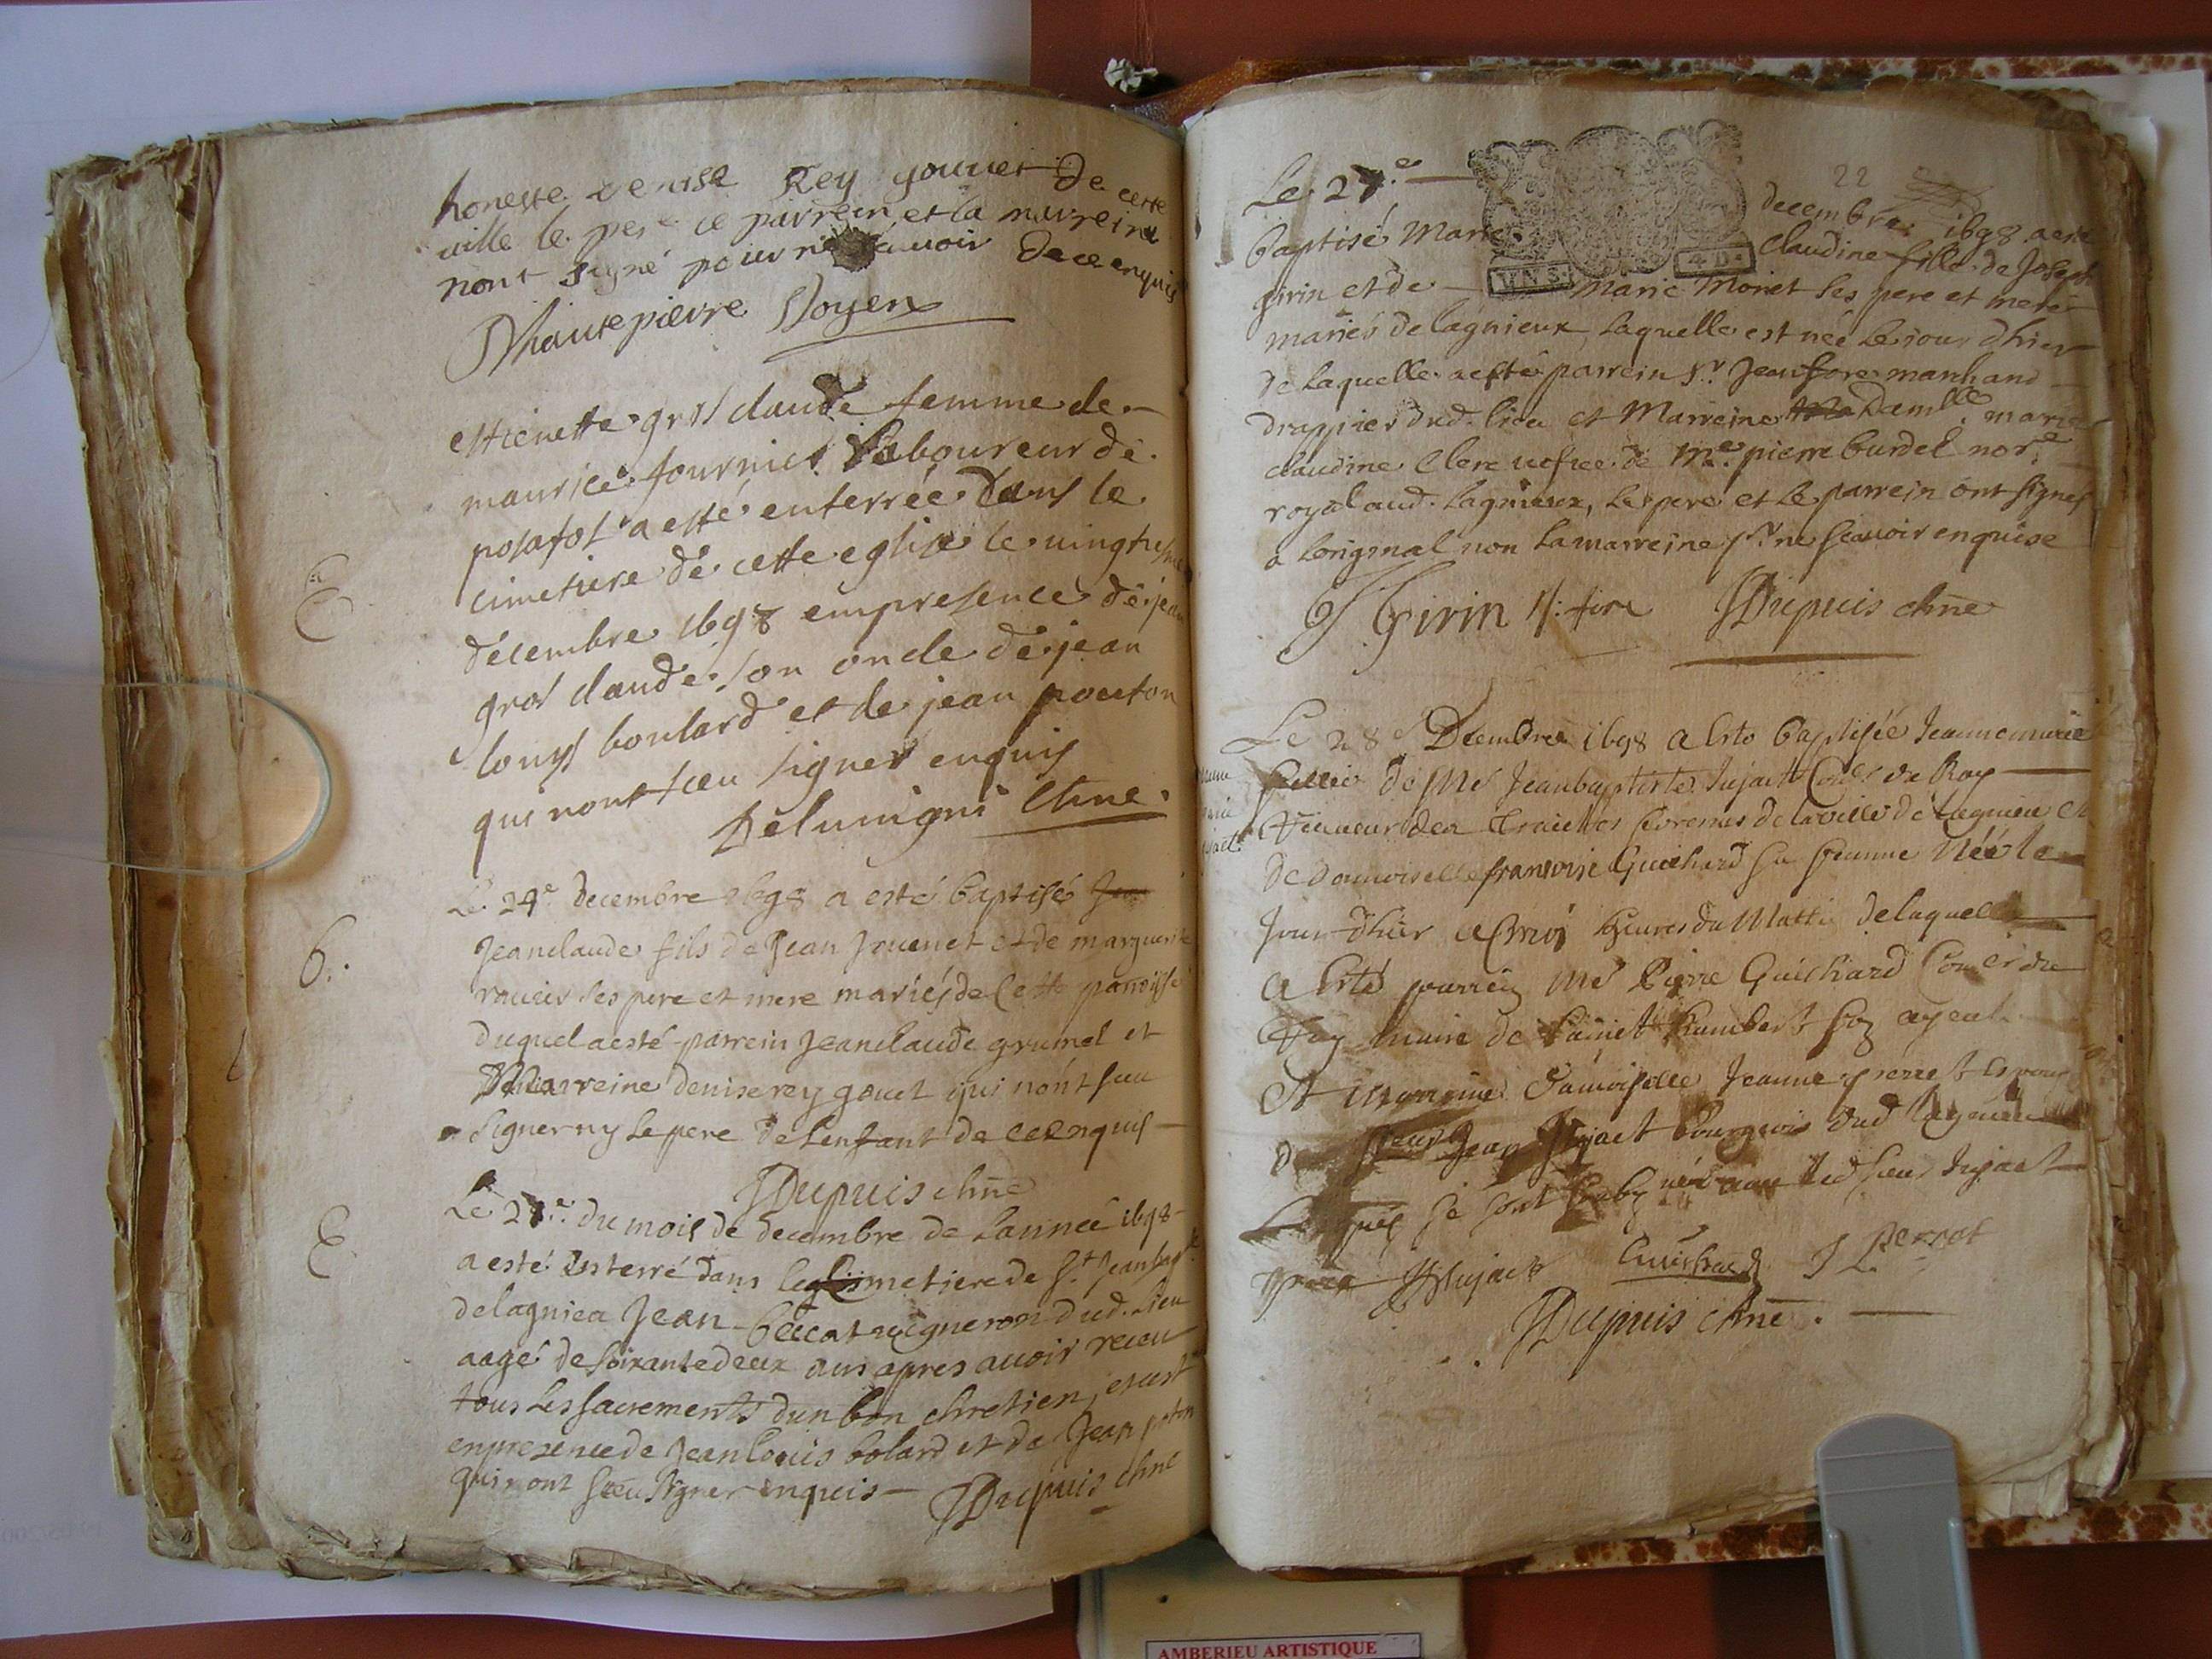 honeste denise Rey gouuet de cette
uille le pere le parrein et la marreine
nont signé pour ne scauoir de ce enquis
Mautepierre Doyen
estienette gros claude femme de
maurice fournier laboureur de
posafol a esté enterrée dans le
cimetiere de cette eglise le uingtiesme
decembre 1698 en presence de jean
gros claude son oncle de jean
louys boulard et de jean pouton
qui nont sceu signer enquis
Delunigni chne.
Le 24e decembre 1698 a esté baptisé
B.
Jeanclaude fils de Jean Jouenet et de marguerite
rouier ses pere et mere mariés de Cette paroisse
duquel a esté parrein Jeanclaude grumel et
Marreine denise rey gouet qui nont sceu
signer ny le pere de lenfant de ce enquis
JDupuis chne
E
Le 27e. du mois de decembre de lannee 1698
a esté Enterré dans le Cimetiere de St Jean bapte
de lagnieu Jean beccat uigneron dud. lieu
aagé de soixante deux ans apres auoir receu
tous les sacremens dun bon chretien, et cest
en presence de Jean Louis bolard et de Jean poton
qui nont sceu signer enquis
JDupuis chne
22
Le 27e decembre 1698 a esté
baptisé Marie Claudine fille de Joseph
VN S. 4 D.
girin et de Marie Monet ses pere et mere
mariés de lagnieux, laquelle est née le iour dhier
de laquelle a esté parrein Sr. Jean fore marchand
drappier dud. lieu et Marreine Damlle marie
claudine Clerc uefue de Me. pierre burdel nore
royal aud. lagnieux, le pere et le parrein ont signés
a loriginal non la marreine pr. ne scauoir enquise
J Girin JDupuis chne
Le 28e Decembre 1698 a Esté baptisée Jeanne marie
fille de Me Jean baptiste Jujact Conser du Roy
de la ville de Lagnieu et
de damoiselle francoise Guichard sa femme Née le
Jour dhier heures du Matin de laquelle
a Esté parrein Me Pierre Guichard Conser du
Roy maire de Sainct Rambert son ayeul
Et marreine Damoiselle Jeanne perret Espouse
de sieur Jean Jujact Bourgeois dud Lagnieu
Lesquels se sont soubsignés auec led sieur Jujact
Jujact Guichard J L Perrot
JDupuis chne.
AMBERIEU ARTISTIQUE